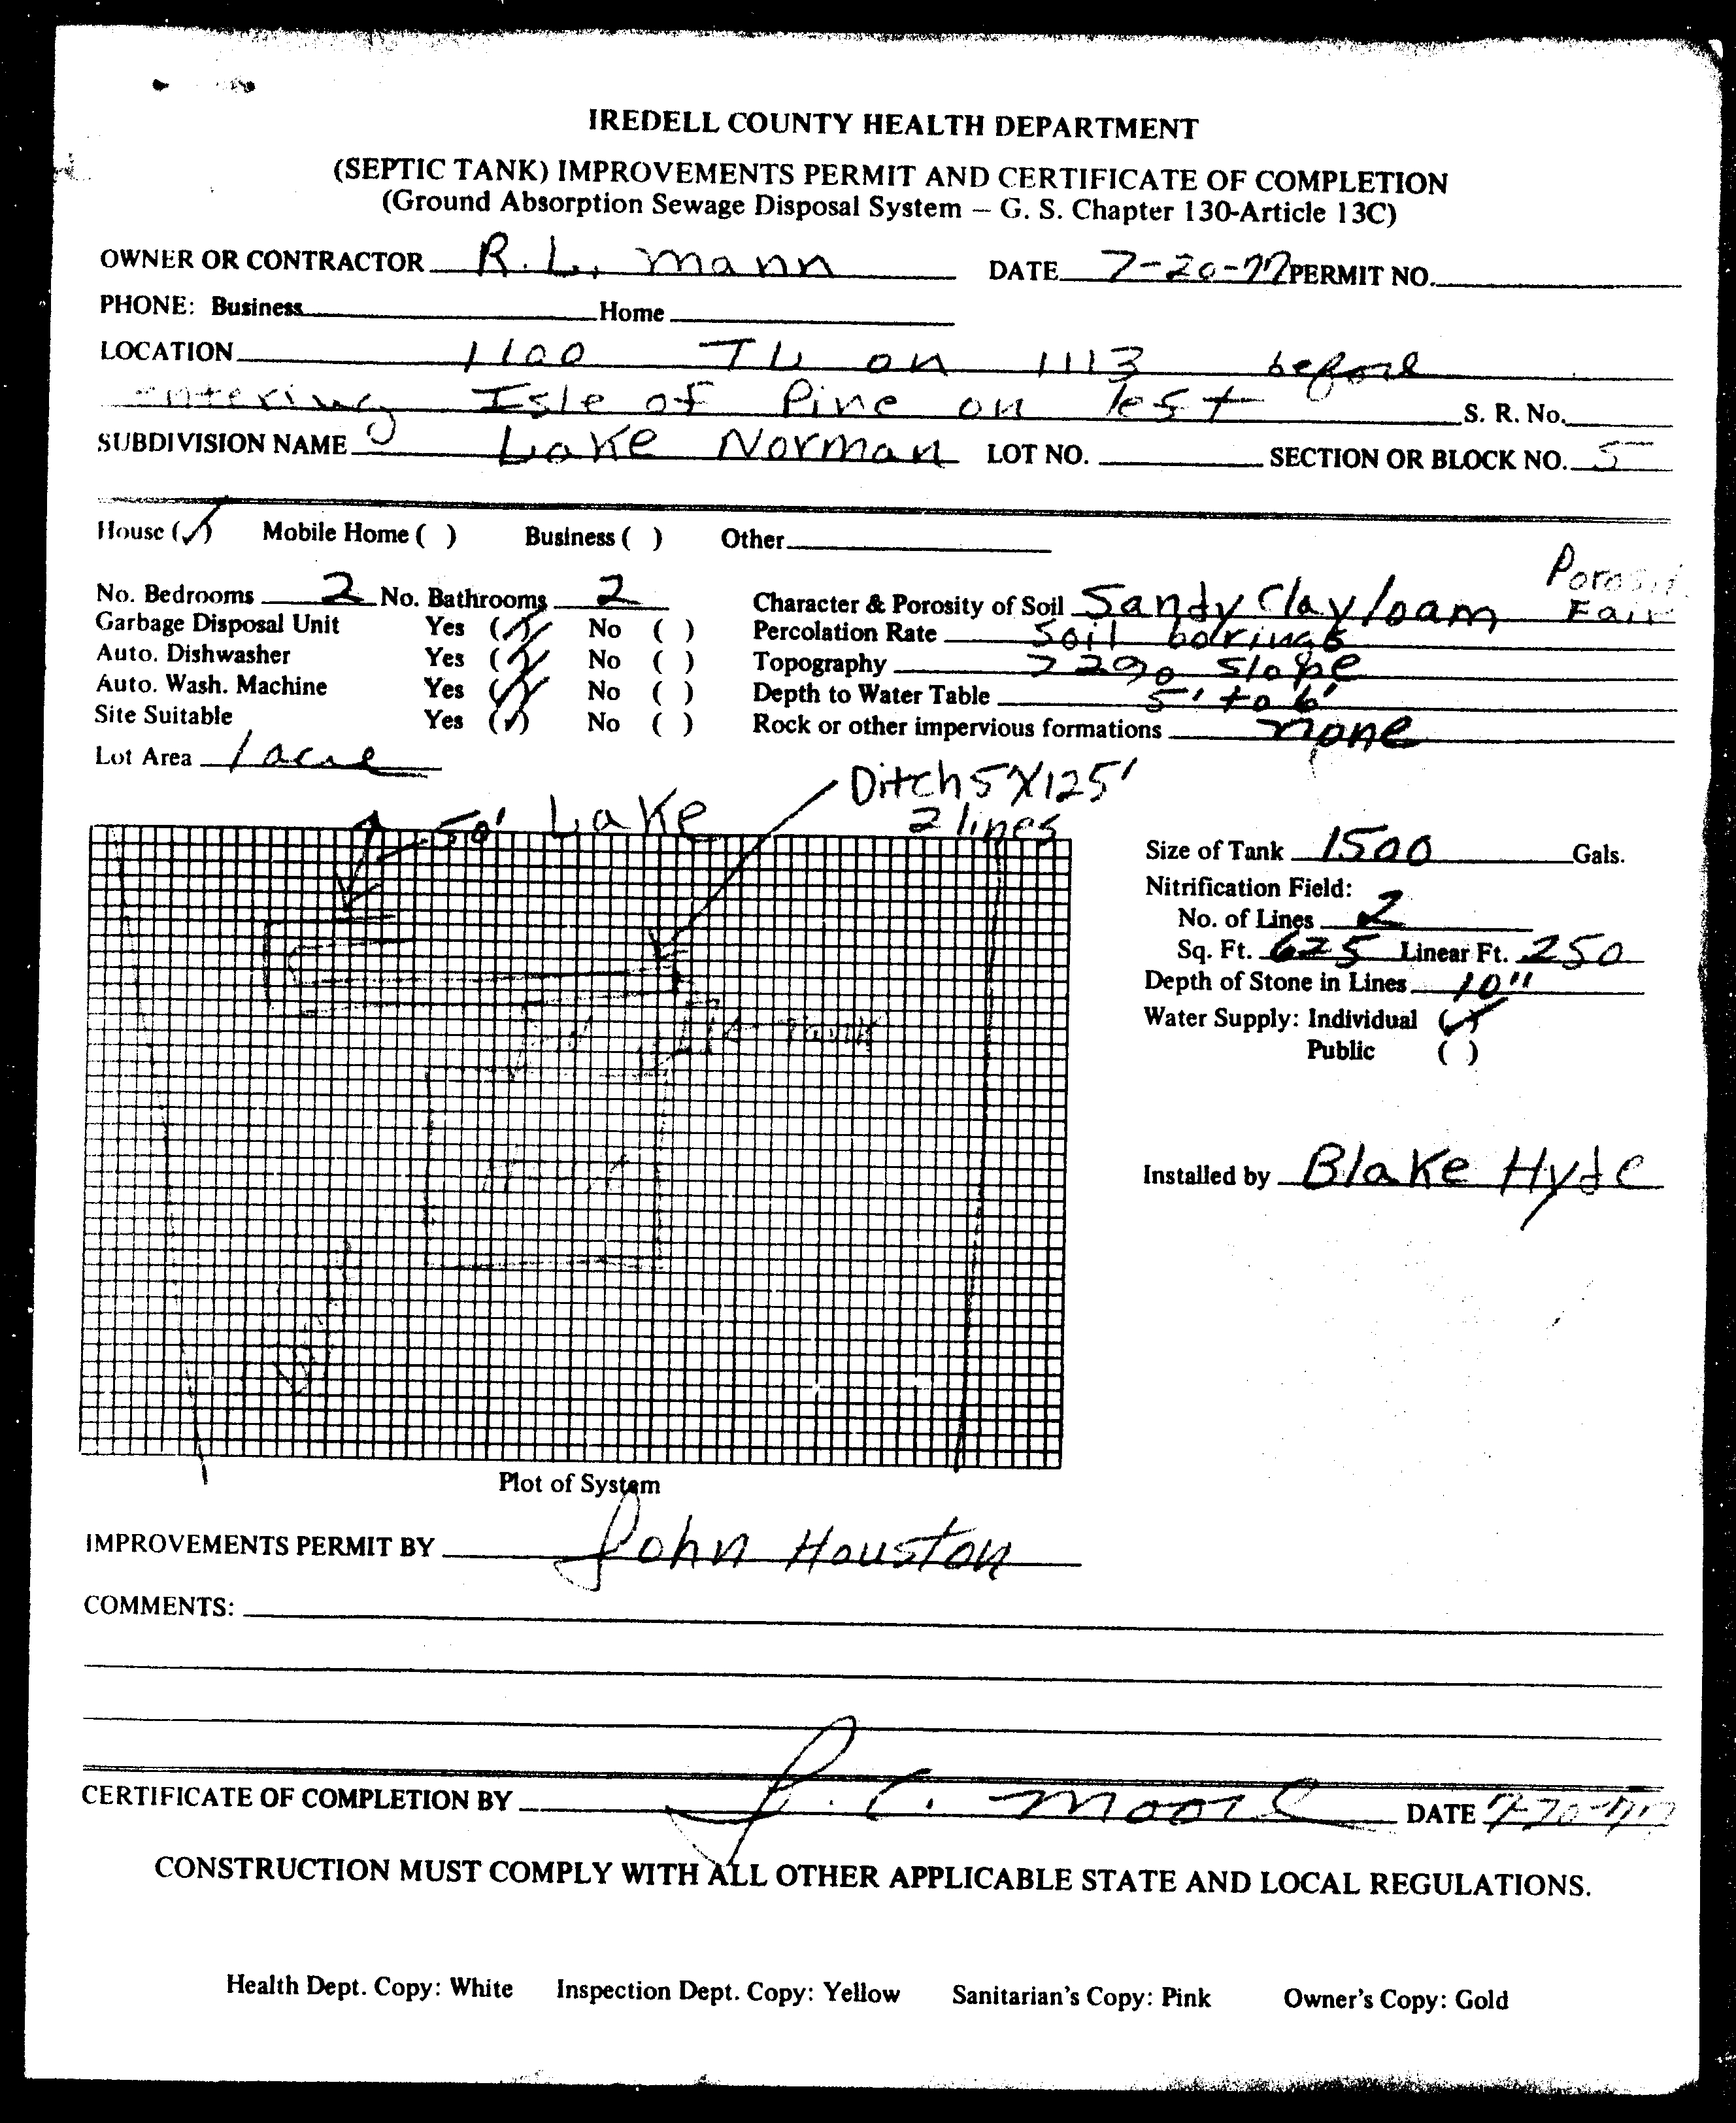 IREDELL COUNTY HEALTH DEPARTMENT
(SEPTIC TANK) IMPROVEMENTS PERMIT AND CERTIFICATE OF COMPLETION
(Ground Absorption Sewage Disposal System – G. S. Chapter 130-Article 13C)
OWNER OR CONTRACTOR R. L. Mann DATE 7-20-77 PERMIT NO.
PHONE: Business Home
LOCATION 1100 TL on 1113 before
entering Isle of Pine on left S. R. No.
SUBDIVISION NAME Lake Norman LOT NO. SECTION OR BLOCK NO. 5
House (✓) Mobile Home ( ) Business ( ) Other
No. Bedrooms 2 No. Bathrooms 2 Character & Porosity of Soil Sandy Clay loam Porosity Fair
Garbage Disposal Unit Yes (✓) No ( ) Percolation Rate Soil borings
Auto. Dishwasher Yes (✓) No ( ) Topography slope
Auto. Wash. Machine Yes (✓) No ( ) Depth to Water Table 5' to 6'
Site Suitable Yes (✓) No ( ) Rock or other impervious formations none
Lot Area 1 acre
Ditch 5'X125'
2 lines
50' Lake
Size of Tank 1500 Gals.
Nitrification Field:
No. of Lines 2
Sq. Ft. 625 Linear Ft. 250
Depth of Stone in Lines 10"
Water Supply: Individual (✓)
Public ( )
Installed by Blake Hyde
Plot of System
IMPROVEMENTS PERMIT BY John Houston
COMMENTS:
CERTIFICATE OF COMPLETION BY J. C. Moore DATE 7-20-77
CONSTRUCTION MUST COMPLY WITH ALL OTHER APPLICABLE STATE AND LOCAL REGULATIONS.
Health Dept. Copy: White Inspection Dept. Copy: Yellow Sanitarian's Copy: Pink Owner's Copy: Gold